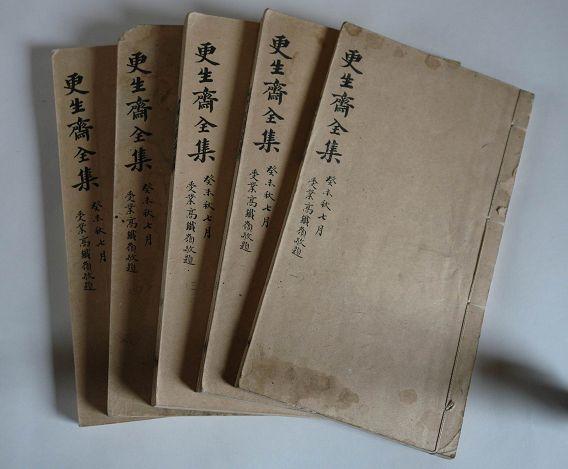 更生齋全集
癸未秋七月
受業高鐵嶺敬題
一
更生齋全集
癸未秋七月
受業高鐵嶺敬題
更生齋全集
癸未秋七月
受業高鐵嶺敬題
三
更生齋全集
癸未秋七月
受業高鐵嶺敬題
四
更生齋全集
癸未秋七月
受業高鐵嶺敬題